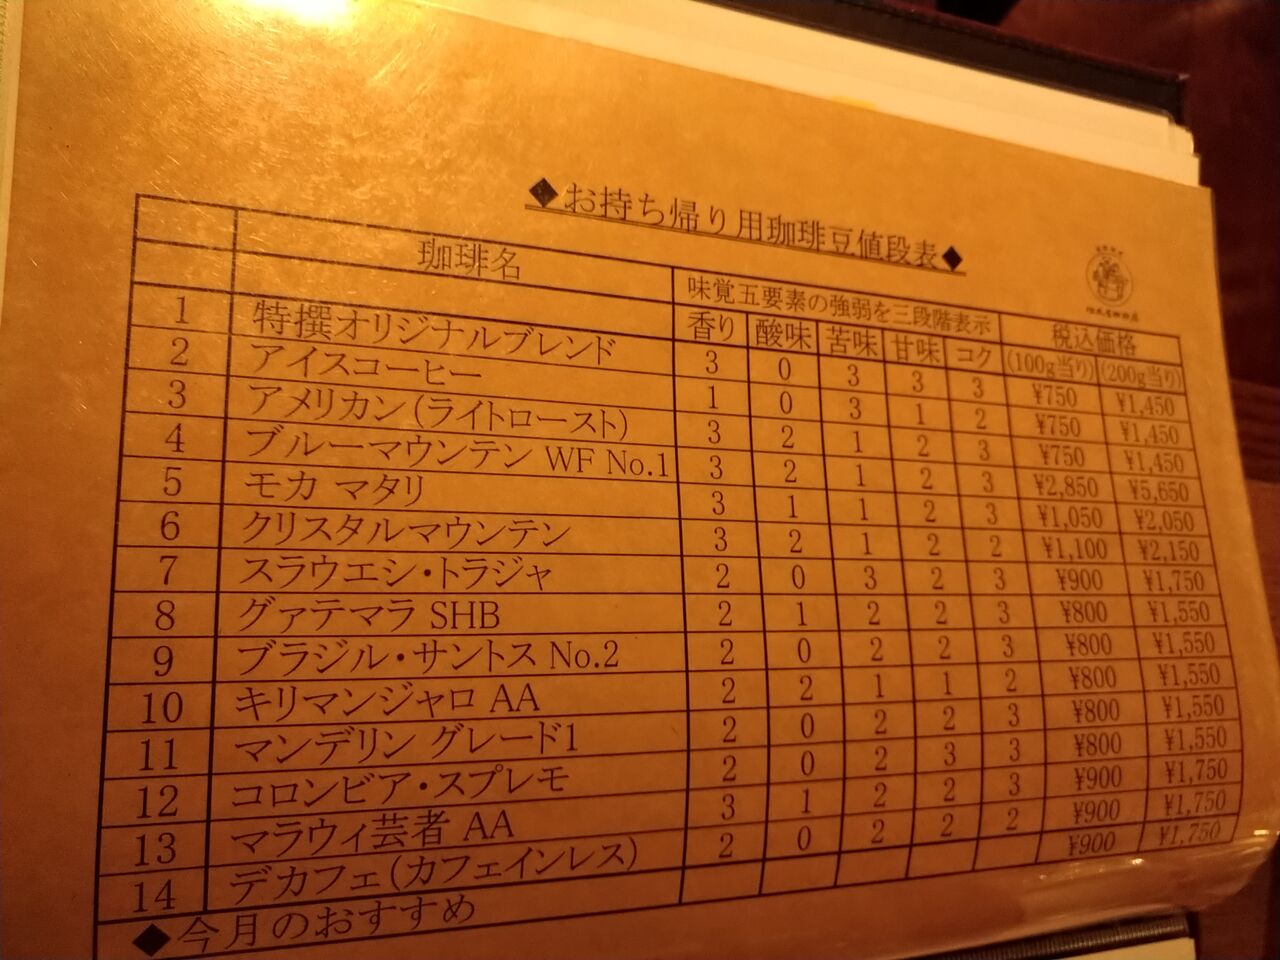 ◆お持ち帰り用珈琲豆値段表◆
珈琲名 味覚五要素の強弱を三段階表示 税込価格
香り 酸味 苦味 甘味 コク (100g当り) (200g当り)
1 特撰オリジナルブレンド 3 0 3 3 3 ¥750 ¥1,450
2 アイスコーヒー 1 0 3 1 2 ¥750 ¥1,450
3 アメリカン(ライトロースト) 3 2 1 2 3 ¥750 ¥1,450
4 ブルーマウンテン WF No.1 3 2 1 2 3 ¥2,850 ¥5,650
5 モカ マタリ 3 1 1 2 3 ¥1,050 ¥2,050
6 クリスタルマウンテン 3 2 1 2 2 ¥1,100 ¥2,150
7 スラウエシ・トラジャ 2 0 3 2 3 ¥900 ¥1,750
8 グァテマラ SHB 2 1 2 2 3 ¥800 ¥1,550
9 ブラジル・サントス No.2 2 0 2 2 3 ¥800 ¥1,550
10 キリマンジャロ AA 2 2 1 1 2 ¥800 ¥1,550
11 マンデリン グレード1 2 0 2 2 3 ¥800 ¥1,550
12 コロンビア・スプレモ 2 0 2 3 3 ¥800 ¥1,550
13 マラウィ芸者 AA 3 1 2 2 3 ¥900 ¥1,750
14 デカフェ(カフェインレス) 2 0 2 2 2 ¥900 ¥1,750
◆今月のおすすめ ¥900 ¥1,750